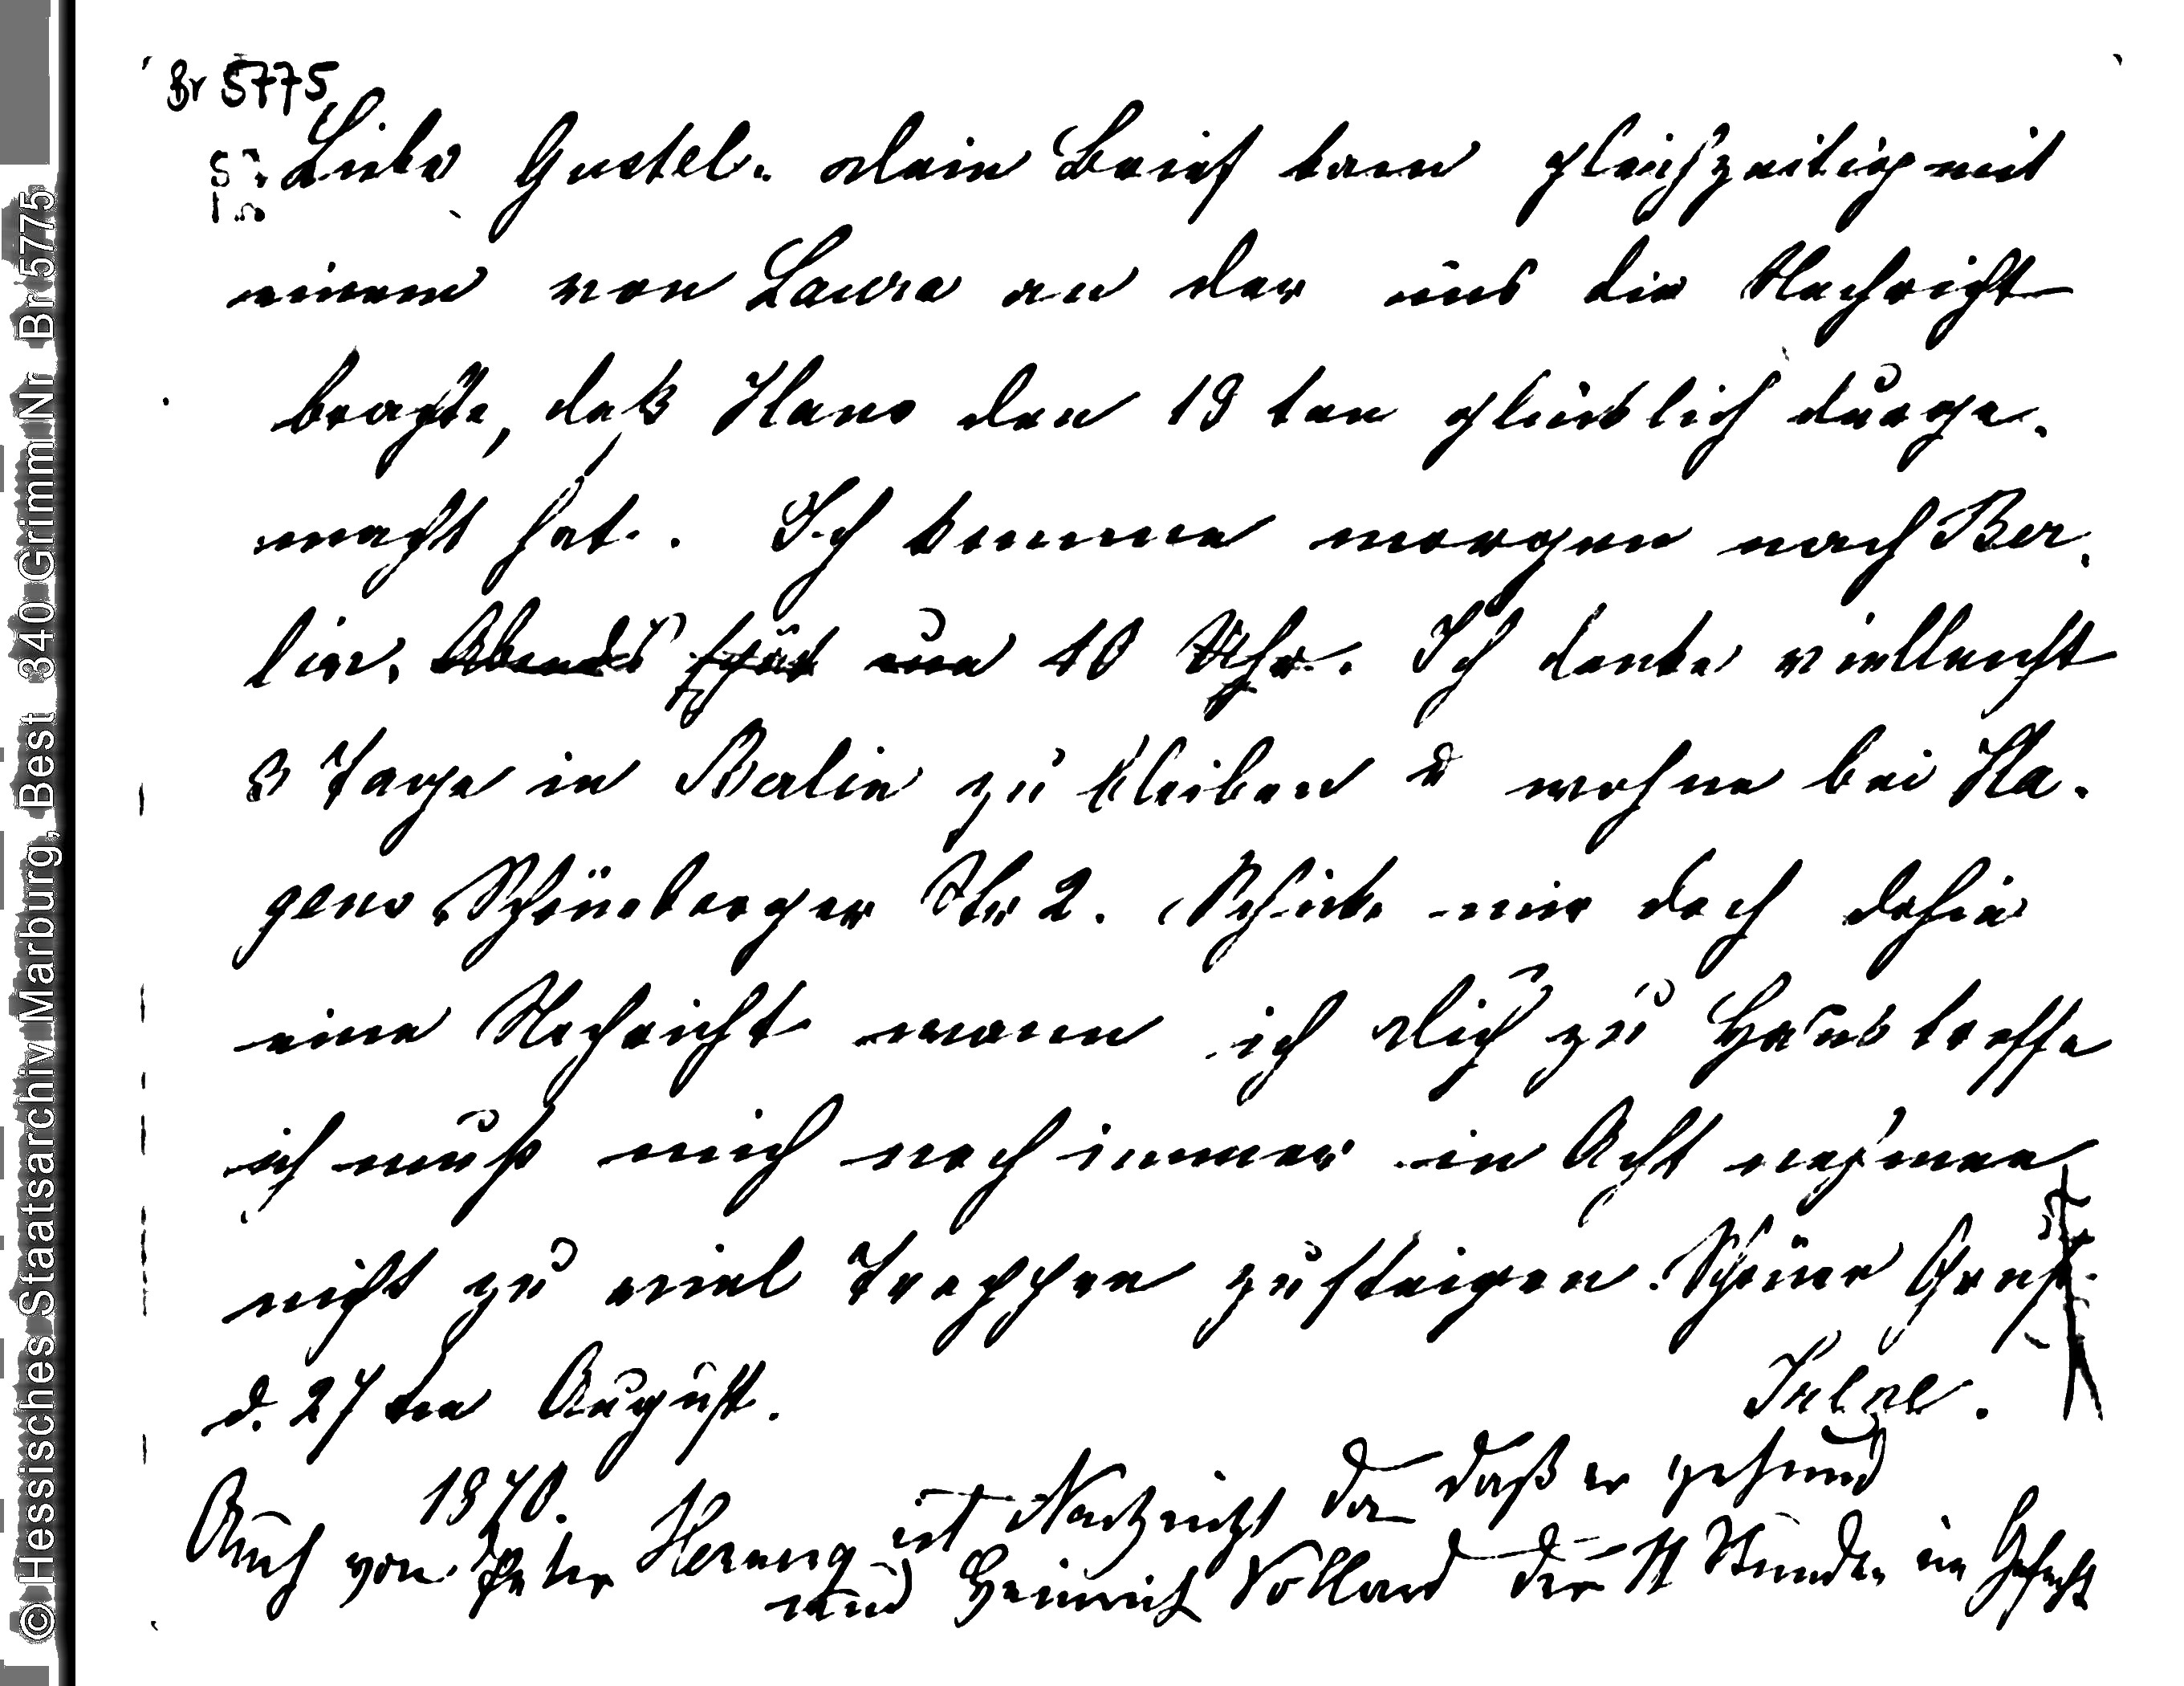 Br 5775
Liebe Gustel. Dein Brief kam gleichzeitig mit
einem von Laura an der uns die Nachricht
brachte, daß Hans den 18 ten glücklich durchge.
macht hat. Ich komme morgen nach Ber.
lin, Abends spät um 10 Uhr. Ich denke vielleicht
3 Tage in Berlin zu bleiben u wohne bei Ha.
gens Schöneberger Str 2. Schicke mir doch dahin
eine Nachricht wann ich Dich zu Haus treffe
ich muß mich noch immer in Acht nehmen
nicht zu viel Treppen zu steigen.
d. 27 ten August.
1870.
Auch von Peter Herwig ist Nachricht da daß er gesund
und Heinrich Vollard der 11 Stunden im Gefecht
© Hessisches Staatsarchiv Marburg, Best. 340 Grimm Nr. Br 5775